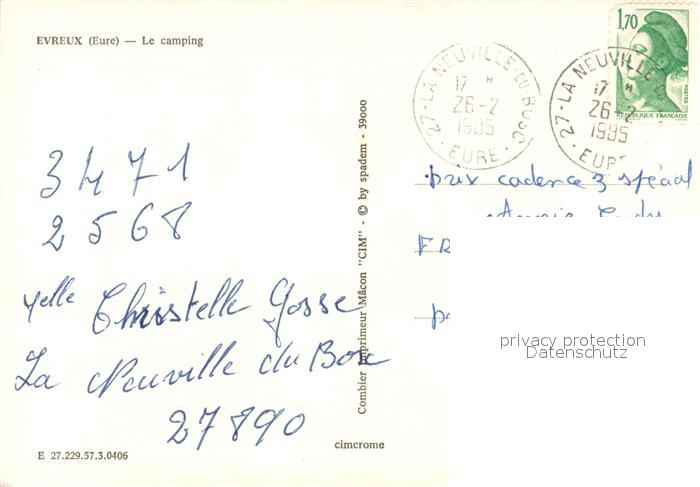 EVREUX (Eure) — Le camping
3 4 7 1
2 5 6 8
Melle Christelle Gosse
La Neuville du Bosc
27890
E 27.229.57.3.0406
cimcrome
Combier Imprimeur Mâcon "CIM" - © by spadem - 39000
27-LA NEUVILLE-DU-BOSC
17 H
26-2
1985
EURE
27-LA NEUVILLE-D
17 H
26-2
1985
EUR
1,70
REPUBLIQUE FRANÇAISE
prix cadence 3 spécial
Annie Cordy
FR
privacy protection
Datenschutz